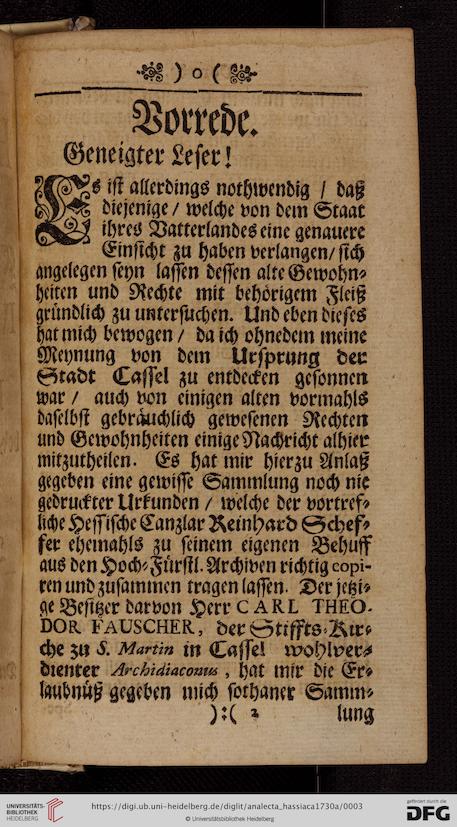 ) o (
Vorrede.
Geneigter Leser!
Es ist allerdings nothwendig / daß
diejenige / welche von dem Staat
ihres Vatterlandes eine genauere
Einsicht zu haben verlangen / sich
angelegen seyn lassen dessen alte Gewohn-
heiten und Rechte mit behörigem Fleiß
gründlich zu untersuchen. Und eben dieses
hat mich bewogen / da ich ohnedem meine
Meynung von dem Ursprung der
Stadt Cassel zu entdecken gesonnen
war / auch von einigen alten vormahls
daselbst gebräuchlich gewesenen Rechten
und Gewohnheiten einige Nachricht alhier
mitzutheilen. Es hat mir hierzu Anlaß
gegeben eine gewisse Sammlung noch nie
gedruckter Urkunden / welche der vortref-
liche Hessische Canzlar Reinhard Schef-
fer ehemahls zu seinem eigenen Behuff
aus den Hoch-Fürstl. Archiven richtig copi-
ren und zusammen tragen lassen. Der jetzi-
ge Besitzer darvon Herr CARL THEO-
DOR FAUSCHER, der Stiffts-Kir-
che zu S. Martin in Cassel wohlver-
dienter Archidiaconus, hat mir die Er-
laubnüß gegeben mich sothaner Samm-
):( 2 lung
UNIVERSITÄTS-
BIBLIOTHEK
HEIDELBERG
https://digi.ub.uni-heidelberg.de/diglit/analecta_hassiaca1730a/0003
© Universitätsbibliothek Heidelberg
gefördert durch die
DFG